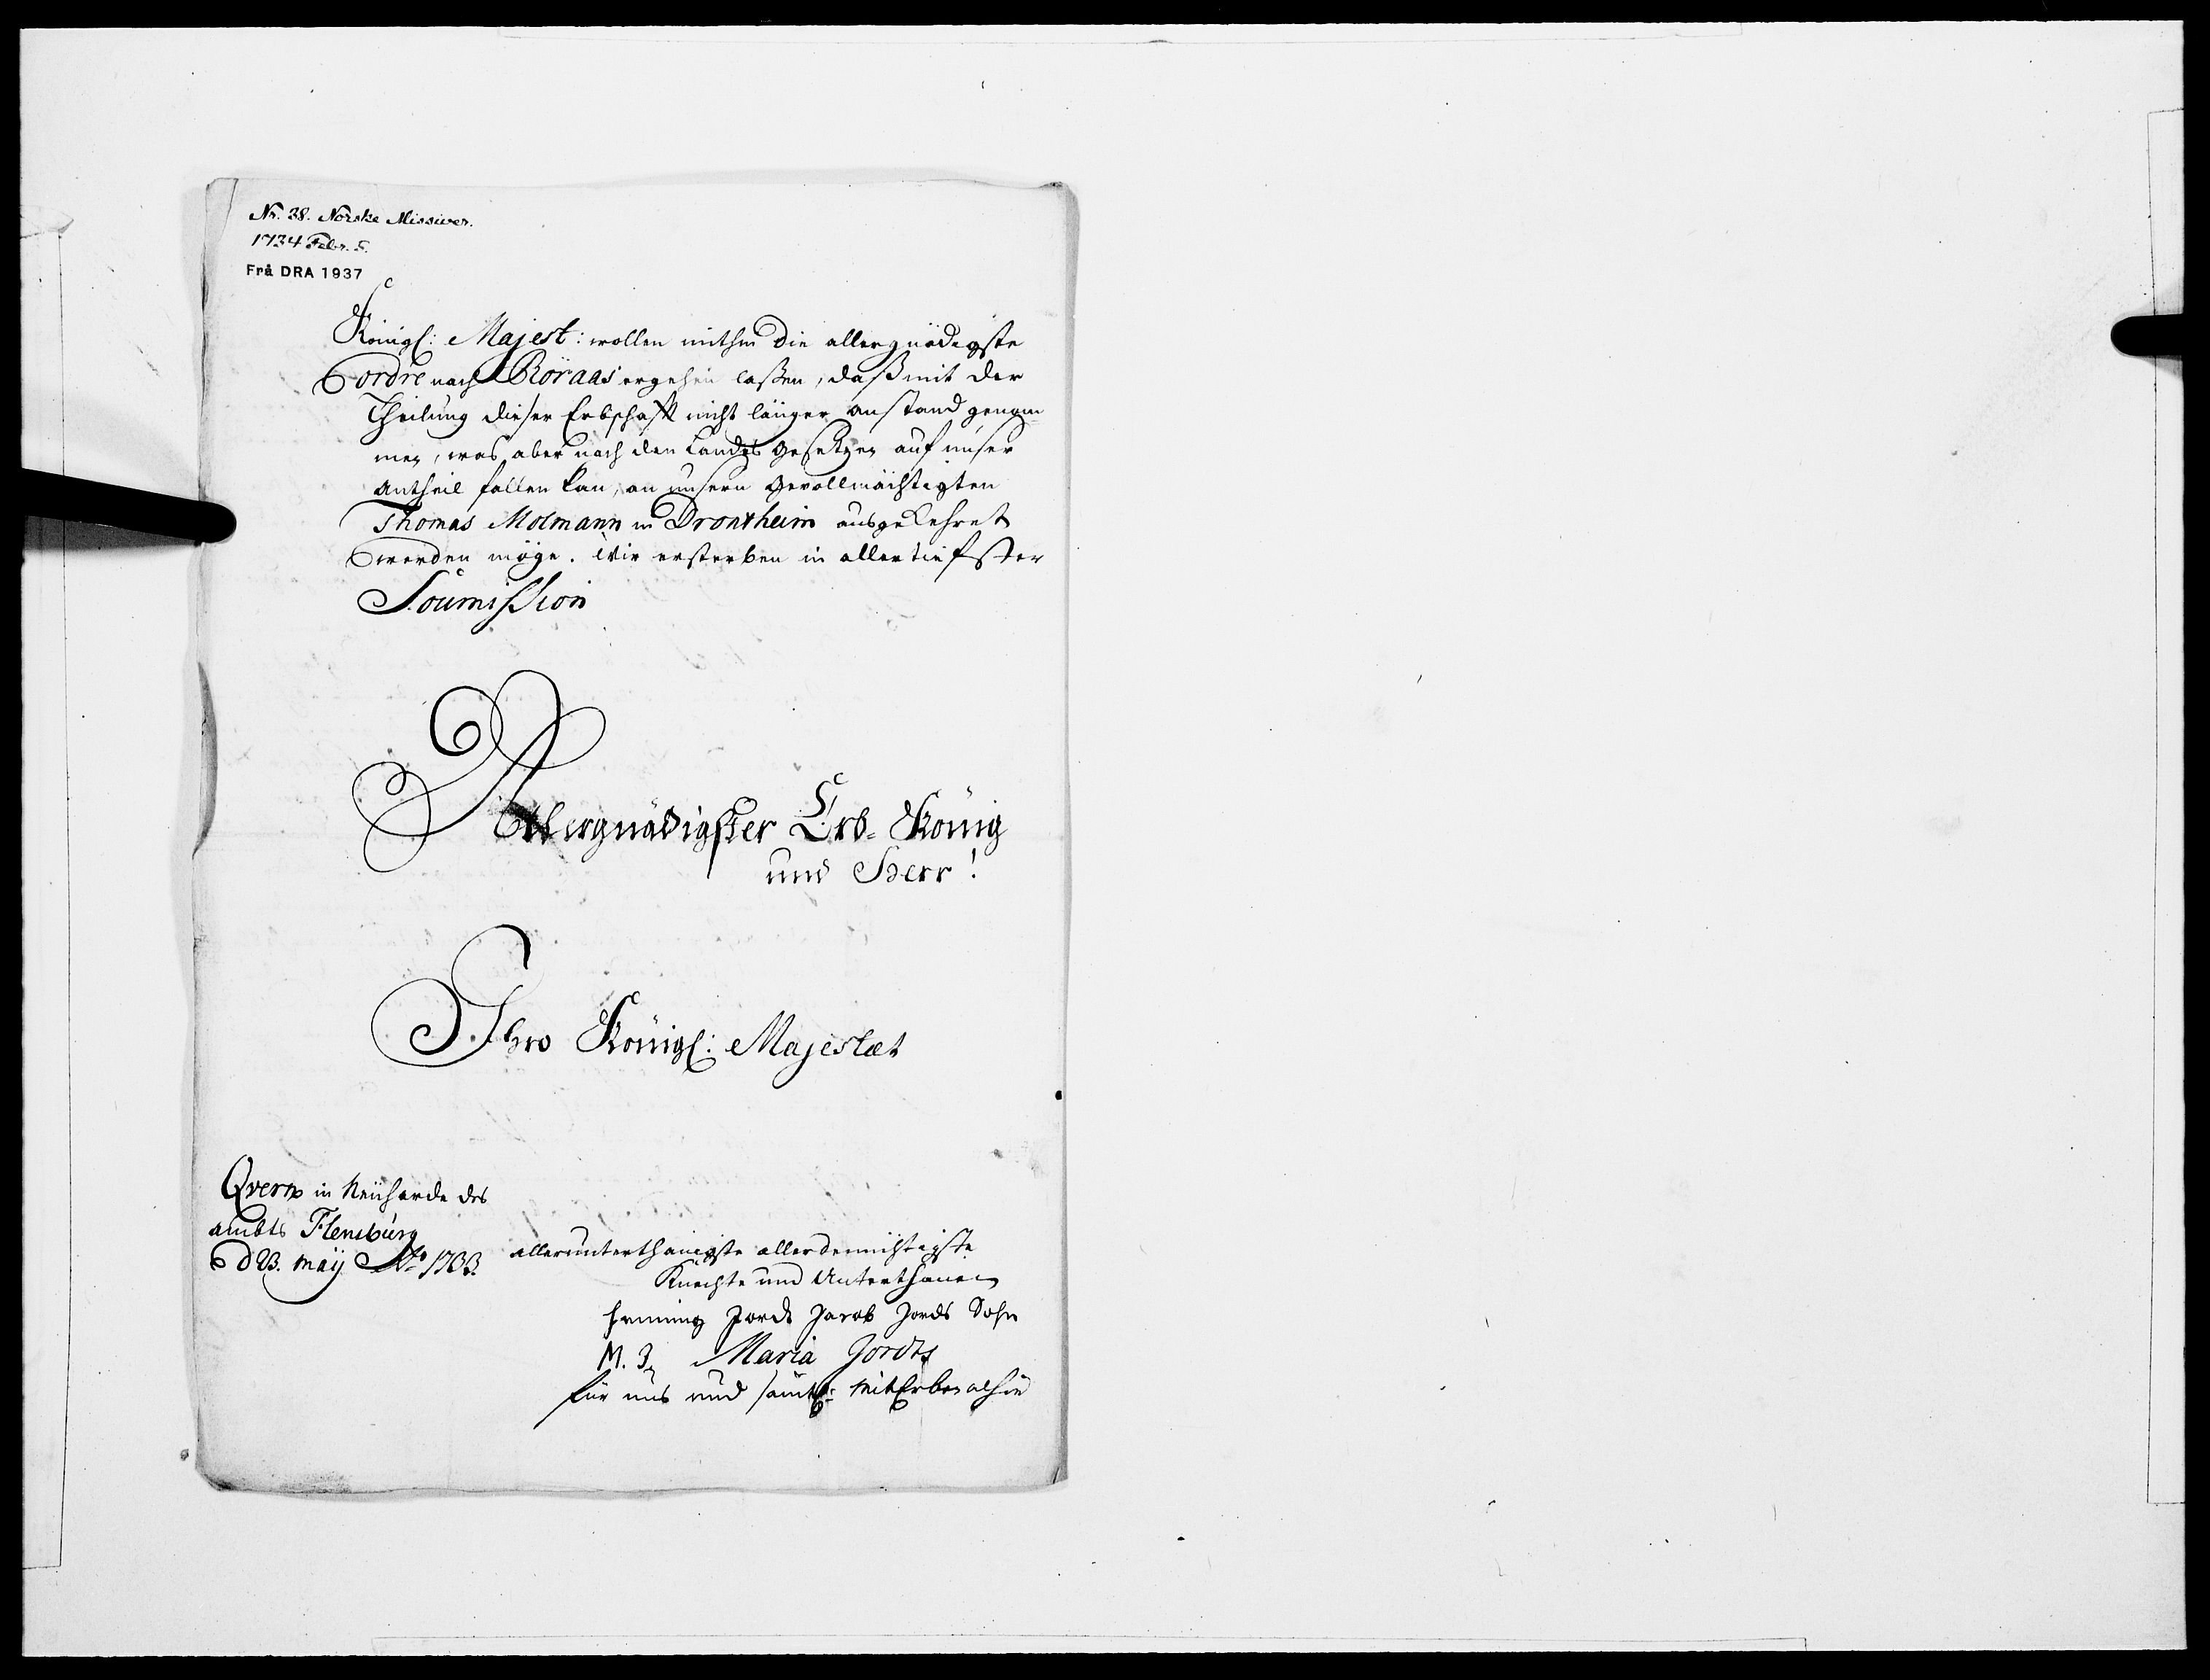 Nr. 38. Norske Missiver.
1734 Febr. 5.
Frå DRA 1937
Königl: Majest: wollen mithin die allergnädigste
ordre nach Röraas ergehen laßen, daß mit der
Theilung dieser Erbschafft nicht länger anstand genom-
men, was aber nach den Landes Gesetzen auf unser
Antheil fallen kan, an unsern Gevollmächtigten
Thomas Molmann in Drontheim ausgekehret
werden möge. Wir ersterben in allertiefster
Soumission
Allergnädigster Erb-König
und Herr!
Ihro Königl: Majestæt
Qvern in Neuharde des
ambts Flensburg
d 23. Maÿ Ao 1733.
allerunterthänigste allerdemüthigste
Knechte und Unterthanen
Henning Jords Jacob Jords Sohn
M. J. Maria Jordts
für uns und sämtl: MitErben alhie